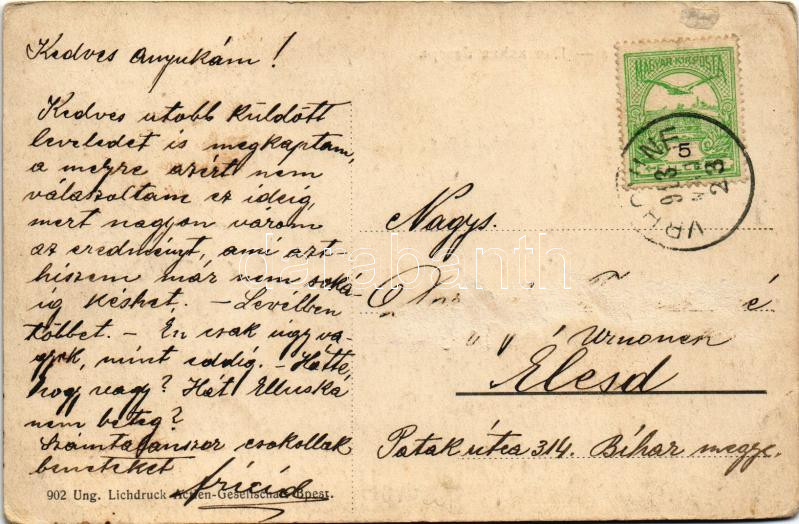 Kedves anyukám!
Kedves utobb küldött
leveledet is megkaptam,
a melyre azért nem
válaszoltam ez ideig,
mert nagyon várom
az eredményt, ami azt
hiszem már nem soká-
ig késhet. - Levélben
többet. - Én csak úgy va-
gyok, mint eddig. - Hátte,
hogy vagy? Hát Elluska
nem beteg?
Számtalanszor csokollak
benneteket
Fricid
902 Ung. Lichdruck Actien-Gesellschaft Bpest.
MAGYAR KIR. POSTA
5
913
23
Nagys.
é
Urnonen
Élesd
Patak útca 314. Bihar megye.
darabanth